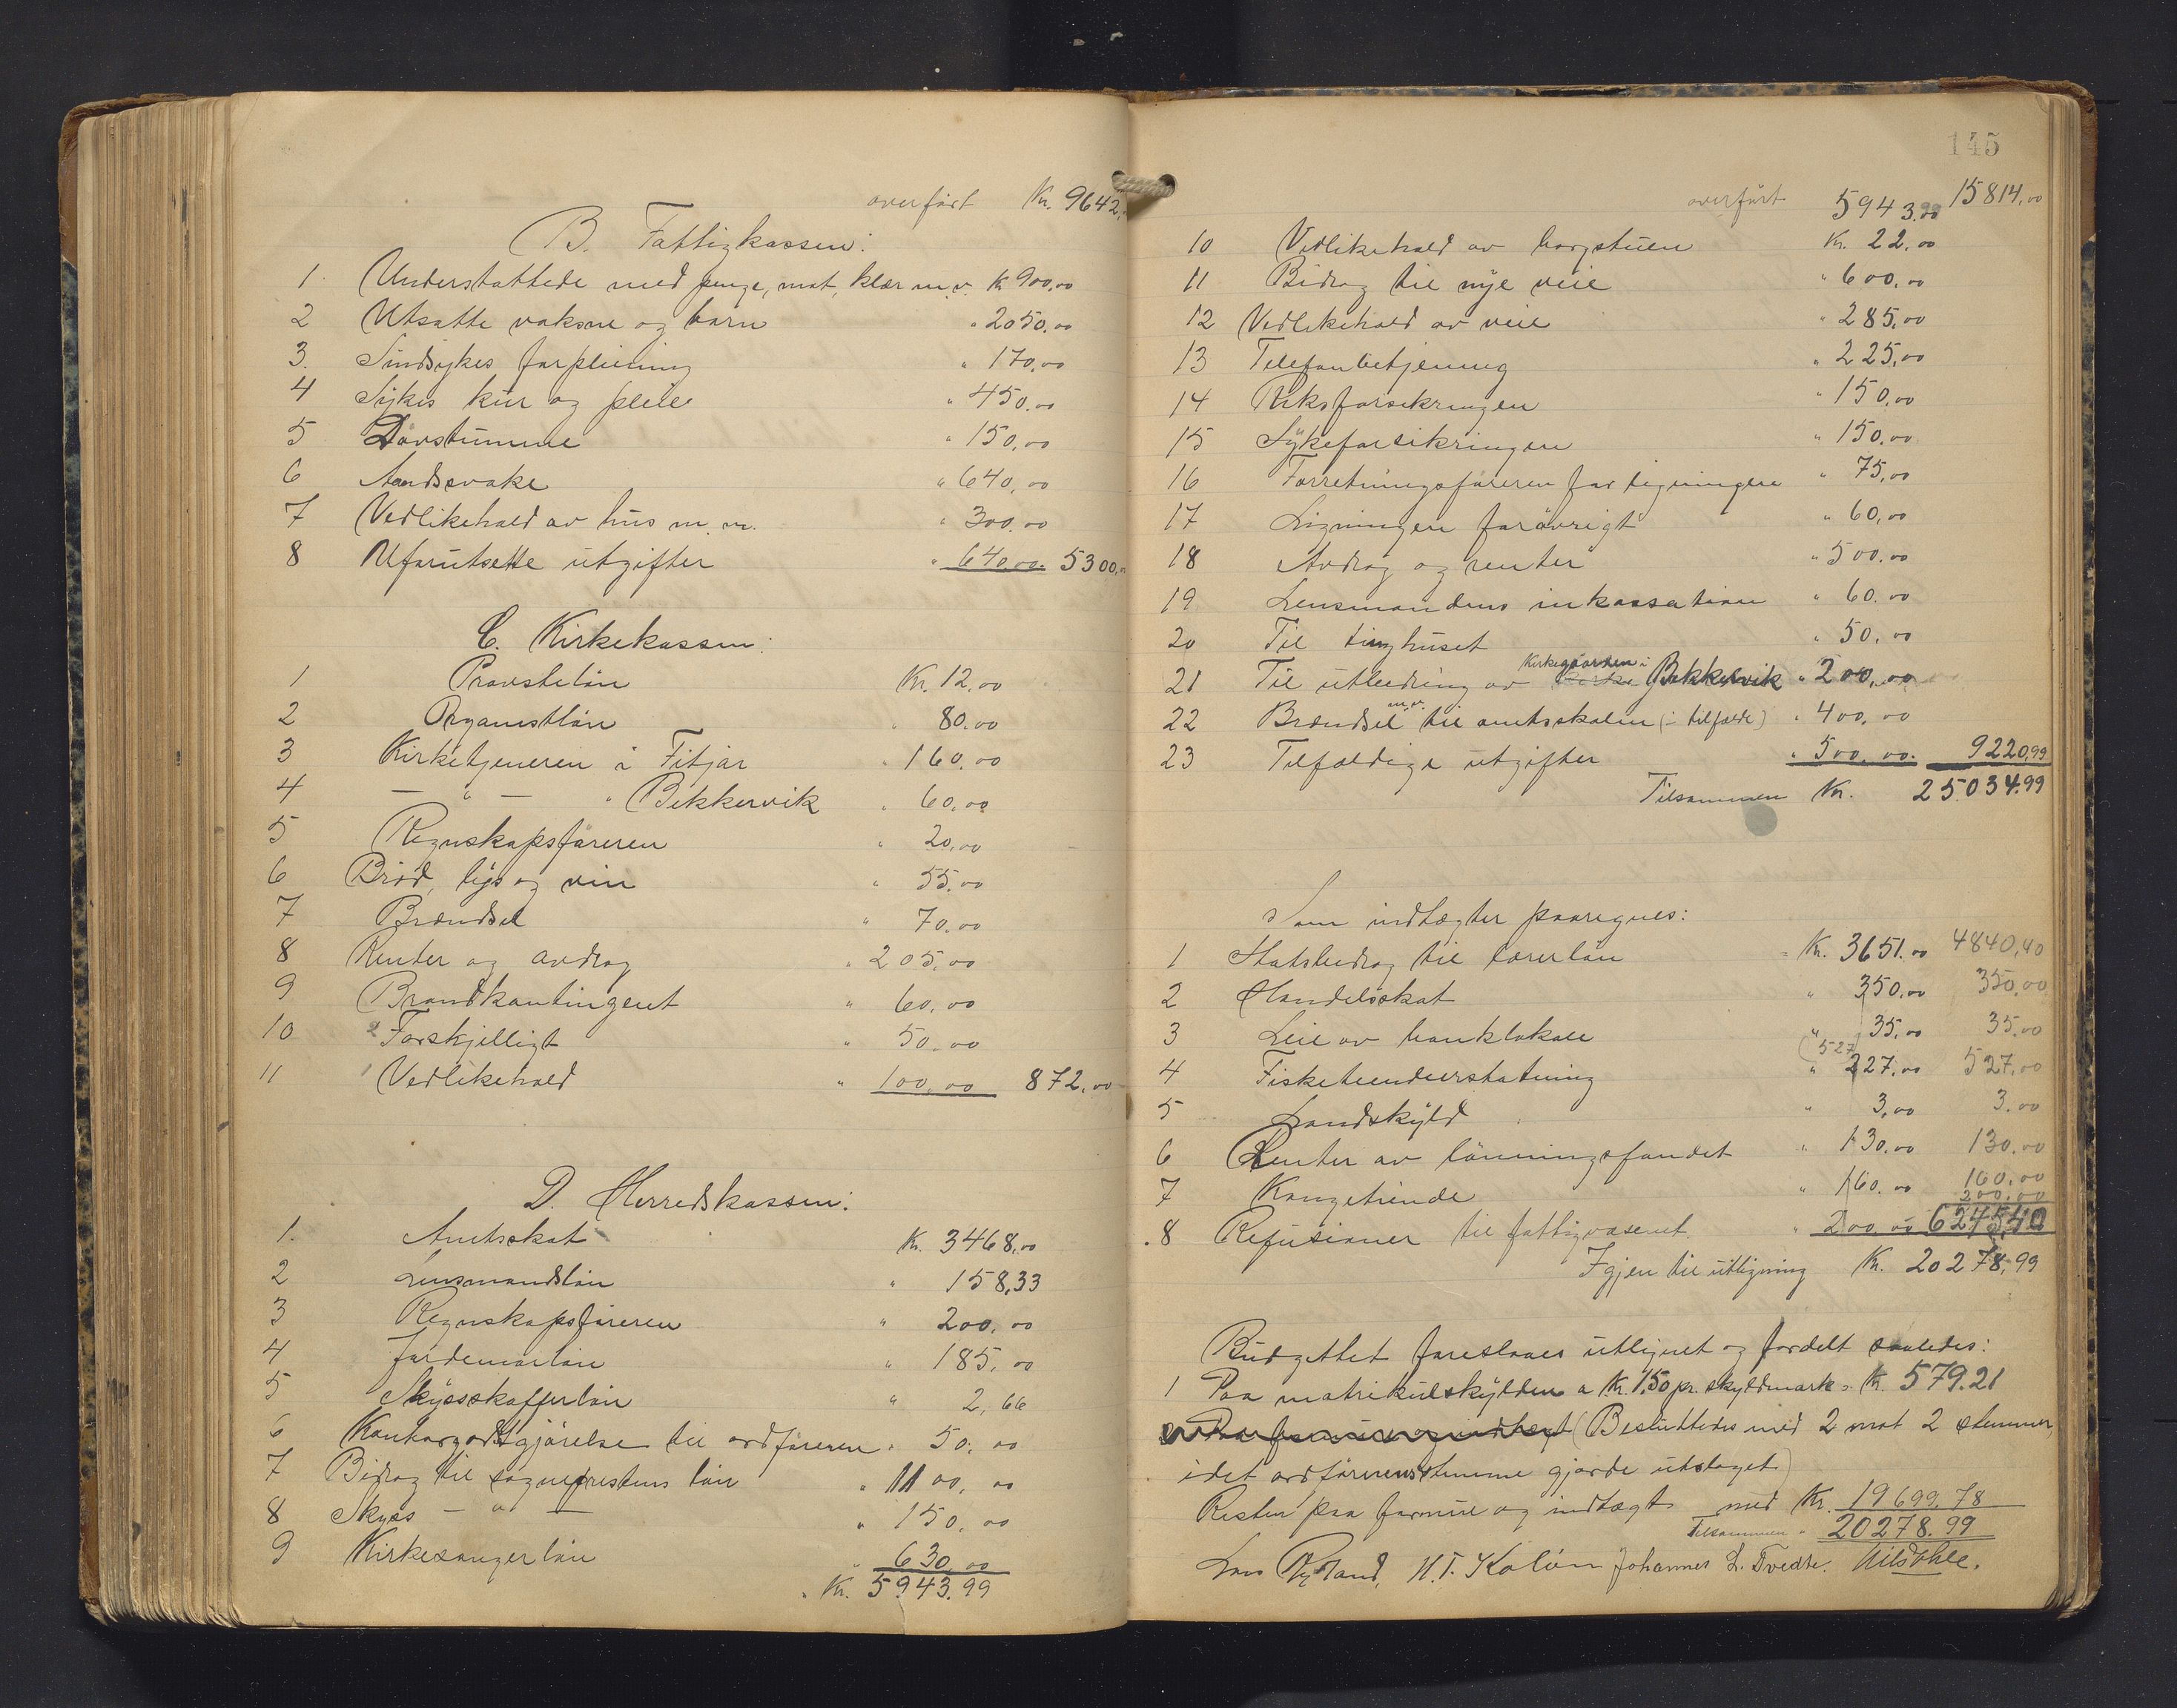 overført Kr. 9642,
B. Fattigkassen:
1 Understøttede med penge, mat, klær m.v. Kr 900,00
2 Utsatte voksne og barn " 2050.00
3. Sindsykes forpleining " 170,00
4 Sykes kur og pleie " 450.00
5 Døvstumme " 150,00
6 Aandssvake " 640,00
7 Vedlikehold av hus m.m. " 300.00
8 Uforutsette utgifter " 640,00. 5300,
C. Kirkekassen:
1 Provsteløn Kr. 12.00
2 Organistløn " 80.00
3 Kirketjeneren i Fitjar " 160.00
4 — " — " Bekkervik " 60,00
5 Regnskapsføreren " 20,00
6 Brød, lys og vin " 55.00
7 Brændsel " 70.00
8 Renter og avdrag " 205,00
9 Brandkontingent " 60,00
10 Forskjelligt " 50.00
11 Vedlikehold " 100,00 872,00
D. Herredskassen:
1. Amtsskat Kr. 3468,00
2 Lensmandsløn " 158,33
3 Regnskapsføreren " 200,00
4 Jordemorløn " 185,00
5 Skysskafferløn " 2,66
6 Kontorgodtgjørelse til ordføreren " 50,00
7 Bidrag til sogneprestens løn " 1100,00
8 Skyss — " — " 150,00
9 Kirkesangerløn " 630,00
" Kr. 5943.99
145
overført 5943.99 15814,00
10 Vedlikehold av borgstuen Kr. 22.00
11 Bidrag til nye veie " 600,00
12 Vedlikehold av veie " 285,00
13 Telefonbetjening " 225,00
14 Riksforsikringen " 150,00
15 Sykeforsikringen " 150,00
16 Forretningsføreren for ligningen " 75,00
17 Ligningen forøvrigt " 60,00
18 Avdrag og renter " 500.00
19 Lensmandens inkassation " 60.00
20 Til tinghuset " 50,00
21 Til utbedring av Kirkegaarden i Bekkervik " 200,00
22 Brændsel m.v. til amtsskolen (i tilfælde) " 400,00
23 Tilfældige utgifter " 500,00. 9220,99
Tilsammen Kr. 25034.99
Som indtægter paaregnes:
1 Statsbidrag til lærerløn = Kr. 3651.00 4840,40
2 Handelsskat " 350,00 350,00
3 Leie av banklokale " 35,00 35.00
4 Fisketiendeerstatning (527) " 227,00 527,00
5 Landskyld " 3,00 3.00
6 Renter av lønningsfondet " 130.00 130.00
7 Kongetiende " 160.00 160.00
200.00
8 Refusioner til fattigvæsenet " 200 00 6245,40
Igjen til utligning Kr. 20278,99
Budgettet foreslaaes utlignet og fordelt saaledes:
1 Paa matrikulskylden a Kr. 1,50 pr. skyldmark = Kr. 579.21
(Besluttedes med 2 mot 2 stemmer,
idet ordførerens stemme gjorde utslaget)
Resten paa formue og indtægt med Kr. 19699.78
Tilsammen " 20278.99
Lars Rydland, H.T. Koløen Johannes L. Tvedte.